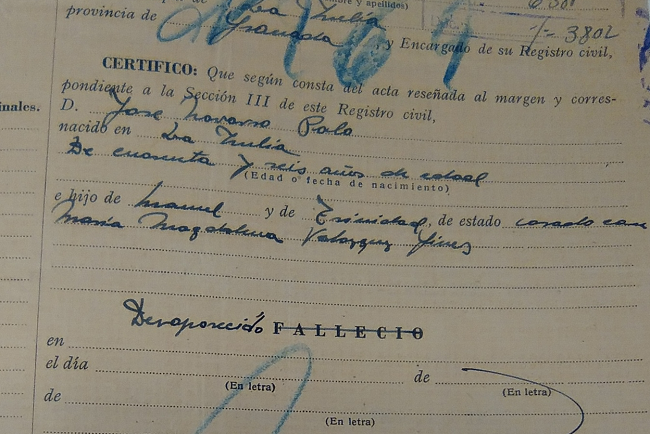 (nombre y apellidos)
provincia de Granada, y Encargado de su Registro civil,
1= 3802
CERTIFICO: Que según consta del acta reseñada al margen y corres-
pondiente a la Sección III de este Registro civil,
inales.
D. Jose Navarro Palo
nacido en La Zubia
De cuarenta y seis años de edad
(Edad o fecha de nacimiento)
e hijo de Manuel y de Trinidad, de estado casado con
María Magdalena Velazquez
Desaparecido FALLECIO
en
el día de
(En letra) (En letra)
de
(En letra)